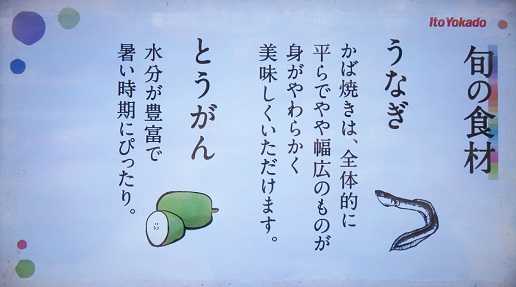 Ito Yokado
旬の食材
うなぎ
かば焼きは、全体的に
平らでやや幅広のものが
身がやわらかく
美味しくいただけます。
とうがん
水分が豊富で
暑い時期にぴったり。